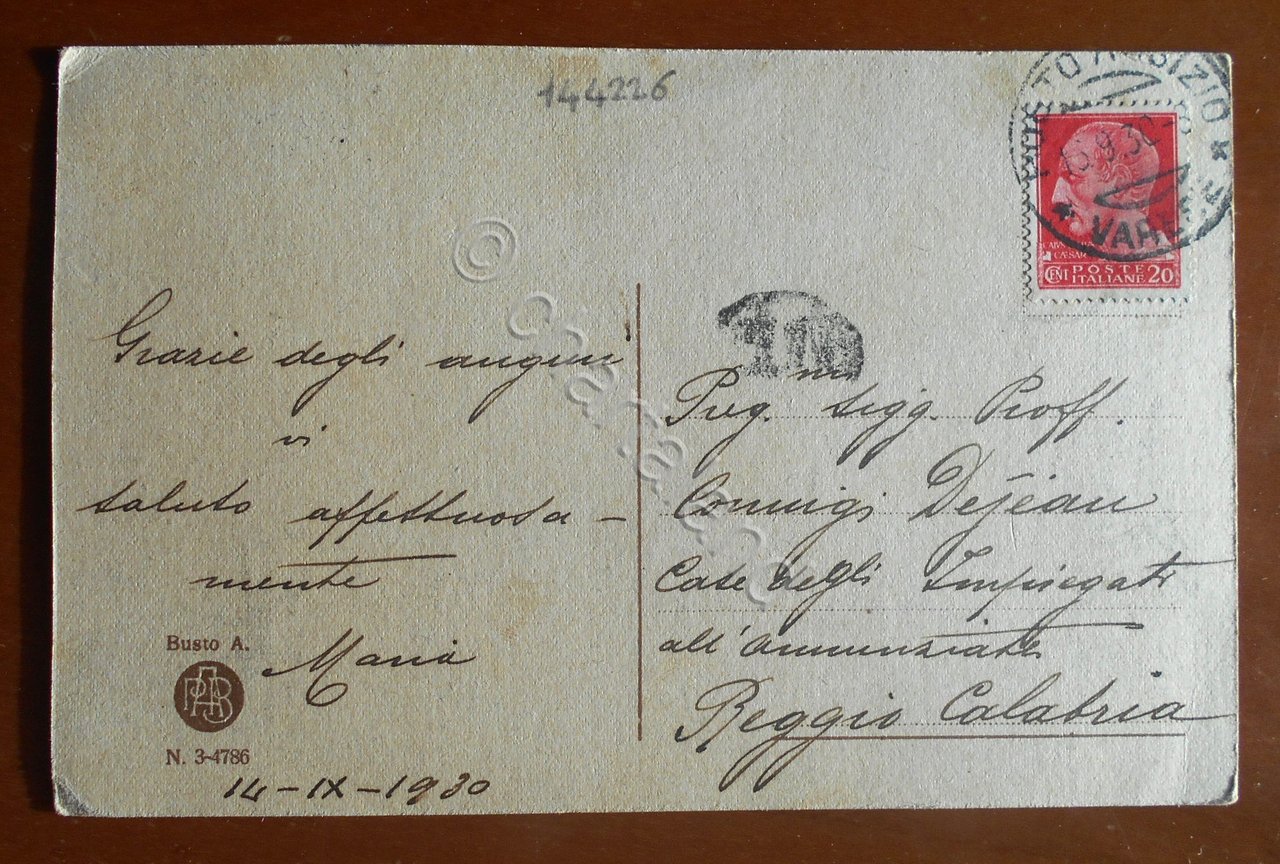 144226
BUSTO ARSIZIO
15.9.30-8
VARESE
CENT POSTE ITALIANE 20
© cartanto
Grazie degli auguri
vi
saluto affettuosa-
mente
Maria
14-IX-1930
Busto A.
N. 3-4786
Preg.mi sigg. Proff.
Coniugi Dejéan
Case degli Impiegati
all'Annunziata
Reggio Calabria